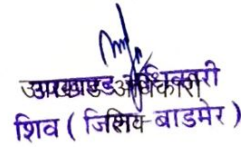 उपखण्ड अधिकारी
शिव ( जिला-बाडमेर )